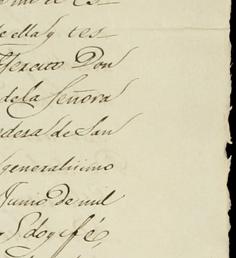 de ella y tes
Exercito Don
de la Señora
edesa de San
generalisimo
Junio de mil
y Doy fé,